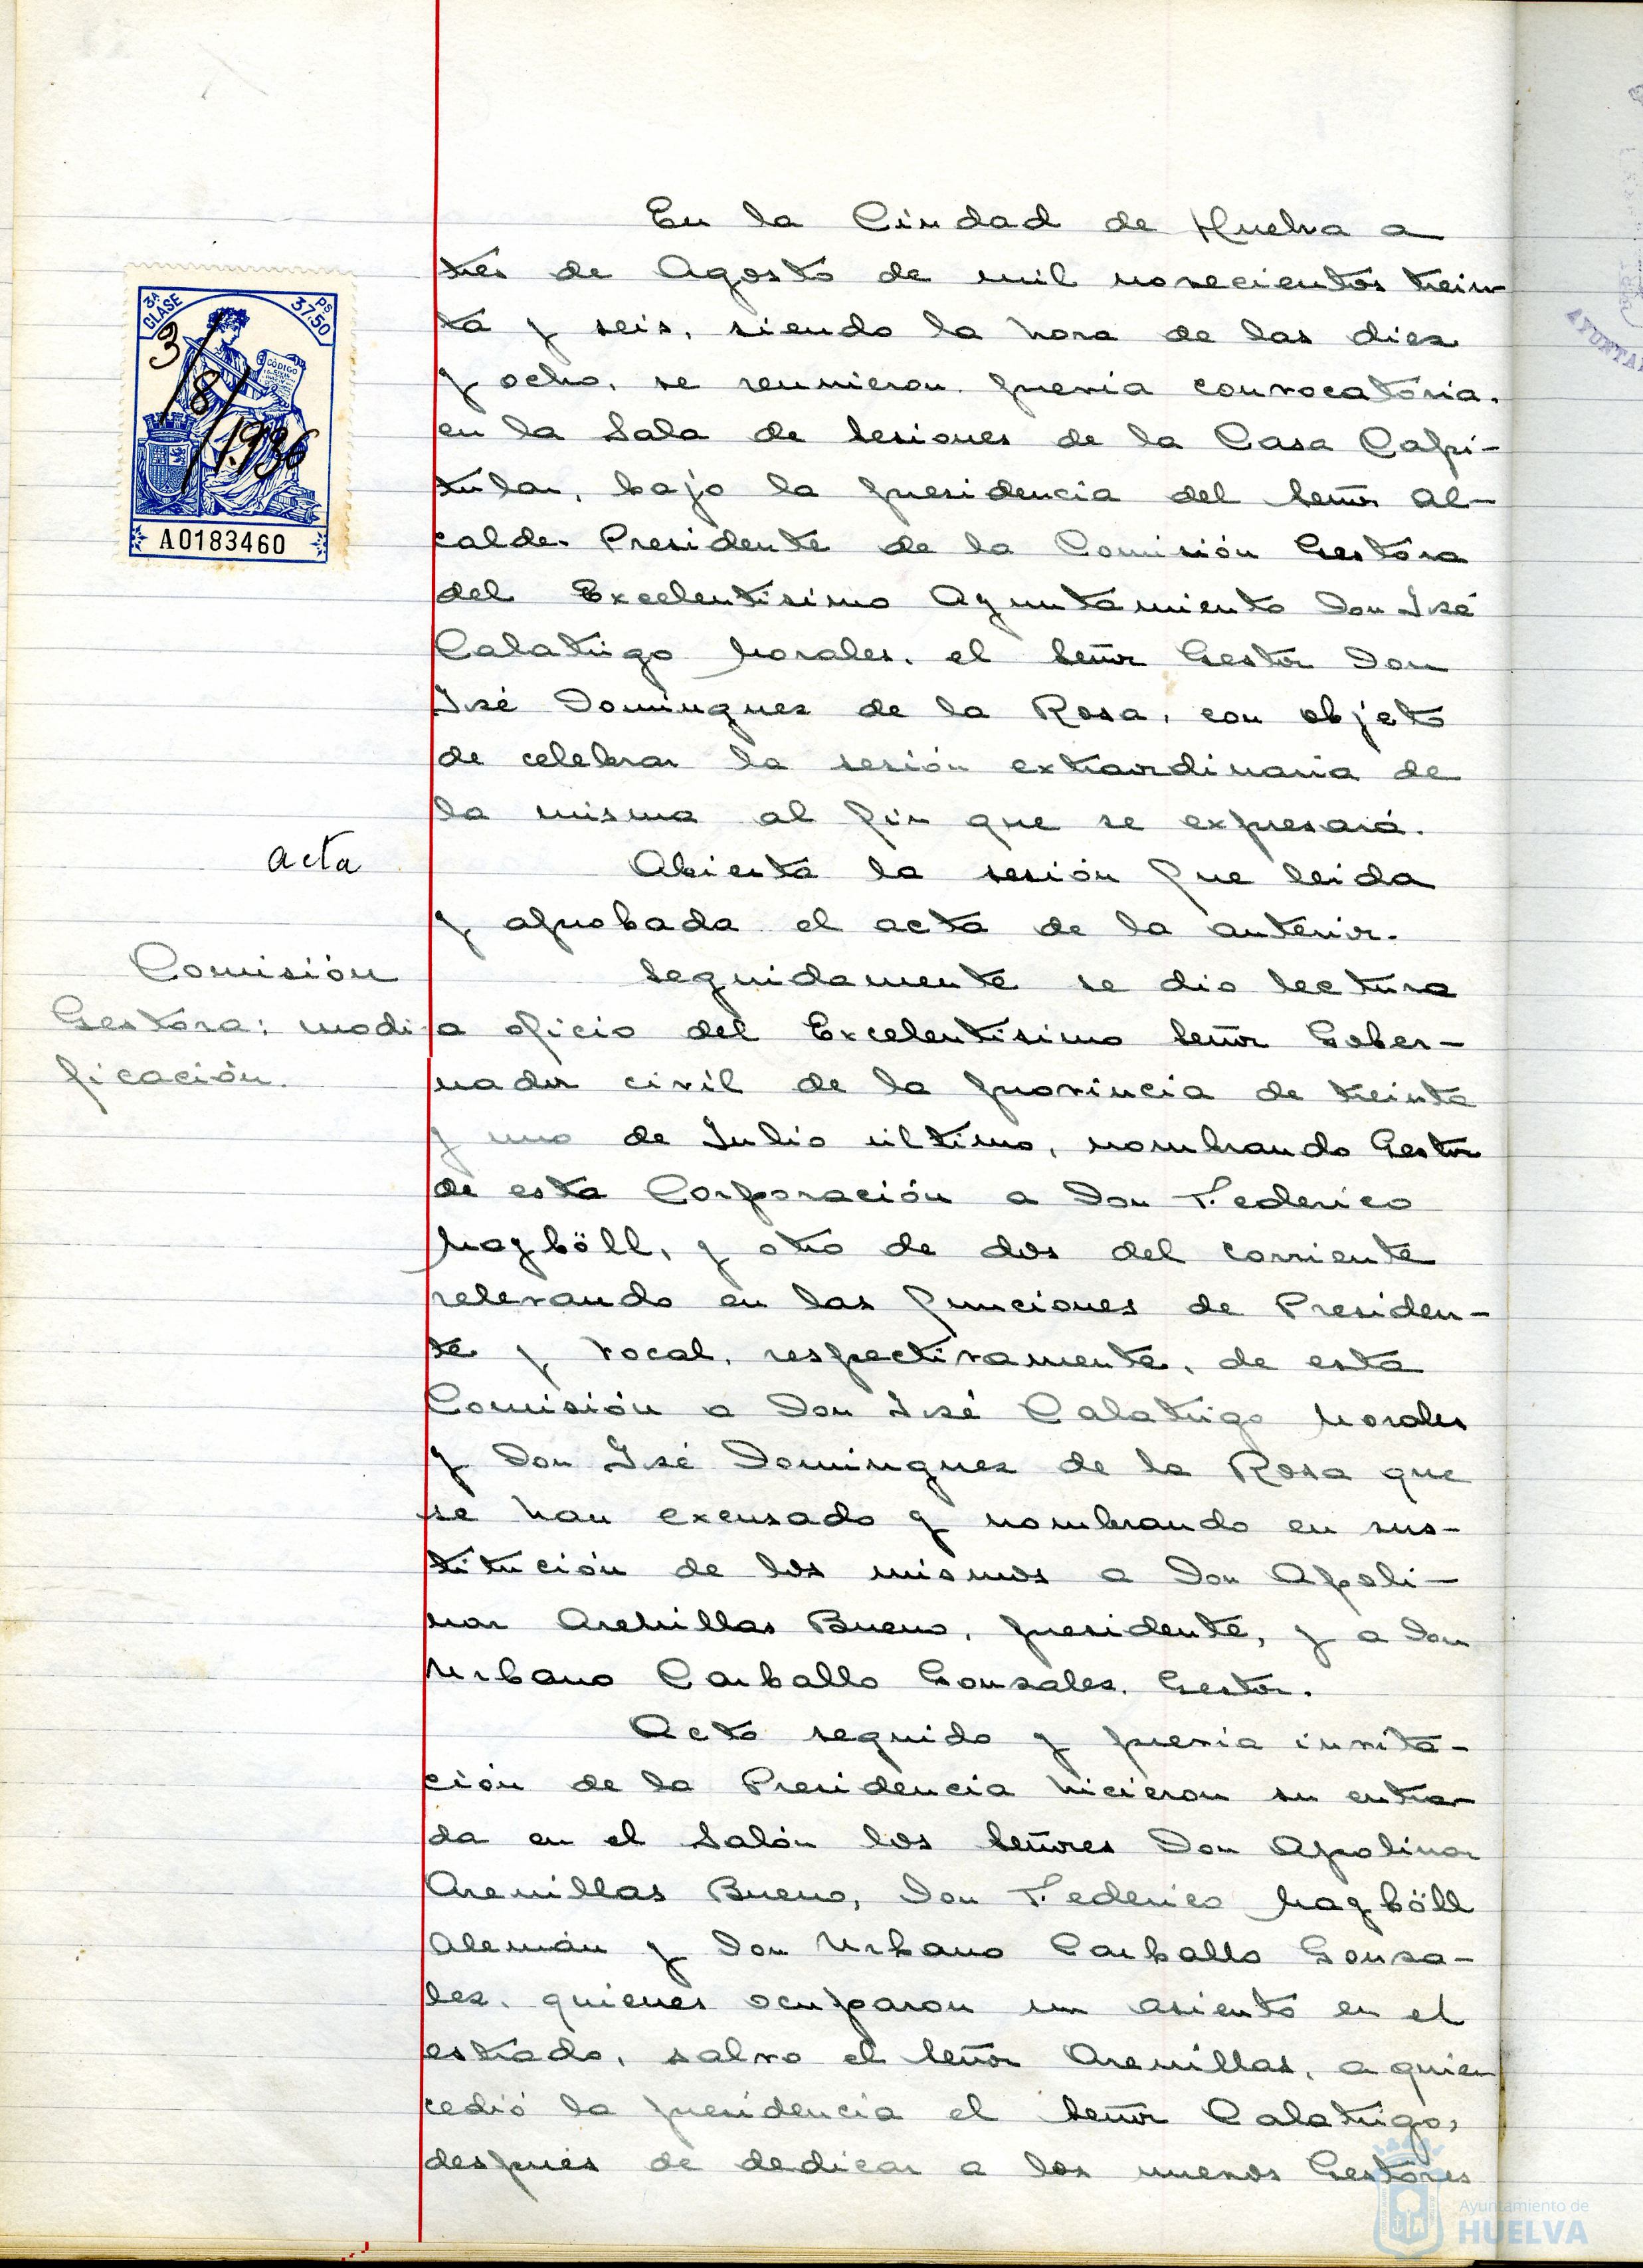 En la Ciudad de Huelva a
tres de Agosto de mil novecientos trein-
ta y seis, siendo la hora de las diez
y ocho, se reunieron, previa convocatoria,
en la Sala de Sesiones de la Casa Capi-
tular, bajo la presidencia del Señor Al-
calde-Presidente de la Comisión Gestora
del Excelentísimo Ayuntamiento Don José
Calatrigo Morales, el Señor Gestor Don
José Dominguez de la Rosa, con objeto
de celebrar la sesión extraordinaria de
la misma al fin que se expresará.
acta
Abierta la sesión fue leida
y aprobada el acta de la anterior.
Comisión
Gestora; modi-
ficación.
Seguidamente se dio lectura
a oficio del Excelentísimo Señor Gober-
nador civil de la provincia de treinta
y uno de Julio último, nombrando Gestor
de esta Corporación a Don Federico
Mayböll, y otro de dos del corriente
relevando en las funciones de Presiden-
te y Vocal, respectivamente, de esta
Comisión a Don José Calatrigo Morales
y Don José Dominguez de la Rosa que
se han excusado y nombrando en sus-
titución de los mismos a Don Apoli-
nar Arenillas Bueno, presidente, y a Don
Urbano Carballo Gonzalez, Gestor.
Acto seguido y previa invita-
ción de la Presidencia hicieron su entra-
da en el Salón los Señores Don Apolinar
Arenillas Bueno, Don Federico Mayböll
Alemán y Don Urbano Carballo Gonza-
lez, quienes ocuparon un asiento en el
estrado, salvo el Señor Arenillas, a quien
cedió la presidencia el Señor Calatrigo,
después de dedicar a los nuevos Gestores
3ª CLASE
37,50 Pts
CÓDIGO
3/8/1.936
A0183460
AYUNTA
Ayuntamiento de
HUELVA